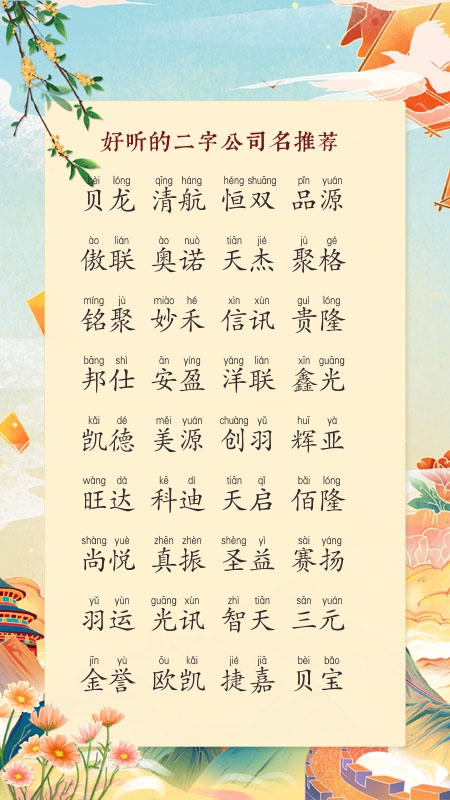 好听的二字公司名推荐
bèi lóng qīng háng héng shuāng pǐn yuán
贝龙 清航 恒双 品源
ào lián ào nuò tiān jié jù gé
傲联 奥诺 天杰 聚格
míng jù miào hé xìn xùn guì lóng
铭聚 妙禾 信讯 贵隆
bāng shì ān yíng yáng lián xīn guāng
邦仕 安盈 洋联 鑫光
kǎi dé měi yuán chuàng yǔ huī yà
凯德 美源 创羽 辉亚
wàng dá kē dí tiān qǐ bǎi lóng
旺达 科迪 天启 佰隆
shàng yuè zhēn zhèn shèng yì sài yáng
尚悦 真振 圣益 赛扬
yǔ yùn guāng xùn zhì tiān sān yuán
羽运 光讯 智天 三元
jīn yù ōu kǎi jié jiā bèi bǎo
金誉 欧凯 捷嘉 贝宝